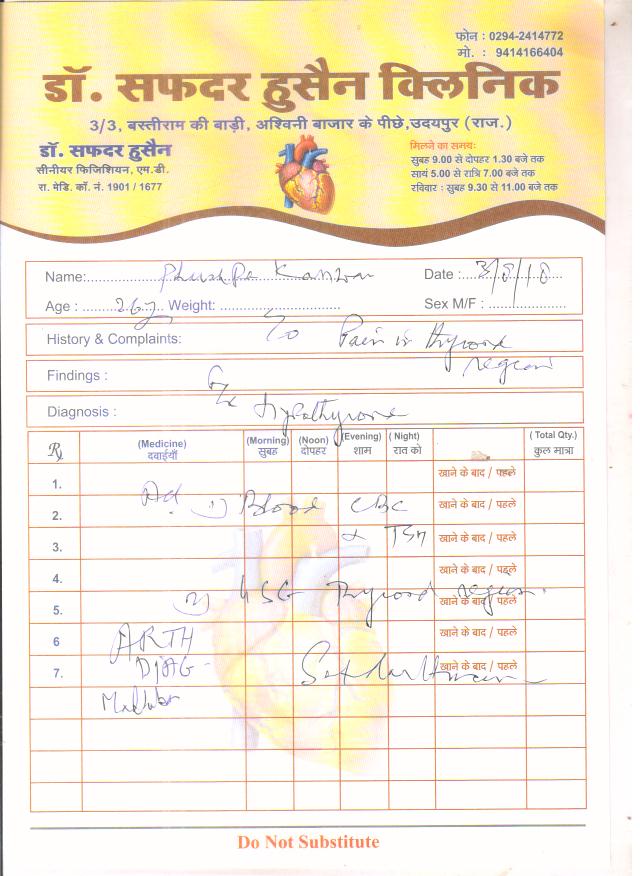 फोन : 0294-2414772
मो. : 9414166404
डॉ. सफदर हुसैन क्लिनिक
3/3, बस्तीराम की बाड़ी, अश्विनी बाजार के पीछे,उदयपुर (राज.)
डॉ. सफदर हुसैन
सीनीयर फिजिशियन, एम.डी.
रा. मेडि. कॉ. नं. 1901 / 1677
मिलने का समयः
सुबह 9.00 से दोपहर 1.30 बजे तक
सायं 5.00 से रात्रि 7.00 बजे तक
रविवार : सुबह 9.30 से 11.00 बजे तक
Name: Phushpa Kanwar Date : 3/8/18
Age : 26y Weight: Sex M/F :
History & Complaints: C/o Pain in thyroid region
Findings :
Diagnosis : Hypothyroid
Rx (Medicine) दवाईयाँ (Morning) सुबह (Noon) दोपहर (Evening) शाम (Night) रात को (Total Qty.) कुल मात्रा
1. खाने के बाद / पहले
Ad 1) Blood CBC
2. खाने के बाद / पहले
& TSH
3. खाने के बाद / पहले
4. खाने के बाद / पहले
2) USG Thyroid region
5. खाने के बाद / पहले
6 ARTH खाने के बाद / पहले
7. DIAG- Safdar Husain खाने के बाद / पहले
Do Not Substitute